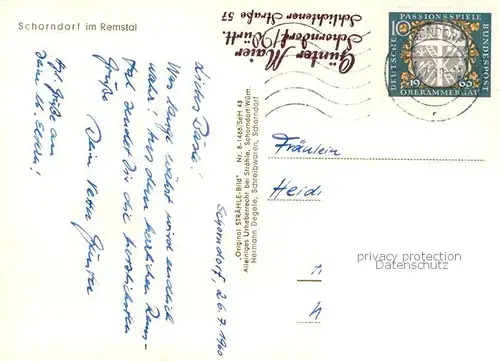 Schorndorf im Remstal
Günter Maier
Schorndorf/Württ.
Schlichtener Straße 57
DEUTSCHE BUNDESPOST
PASSIONSSPIELE
10
1960
OBERAMMERGAU
Schorndorf, 26.7.1960
Liebes Bäsle!
Was lange währt wird endlich
wahr! Aus dem herrlichen Rems-
tal sendet Dir die herzlichsten
Grüße
Dein Vetter Günter
Hgl. Grüße an
Deine lb. Eltern!
"Original STRÄHLE-Bild" Nr. 6-1468/SeH 43
Alleiniges Urheberrecht bei Strähle, Schorndorf/Württ.
Hermann Degele, Schreibwaren, Schorndorf
Fräulein
Heidi
privacy protection
Datenschutz